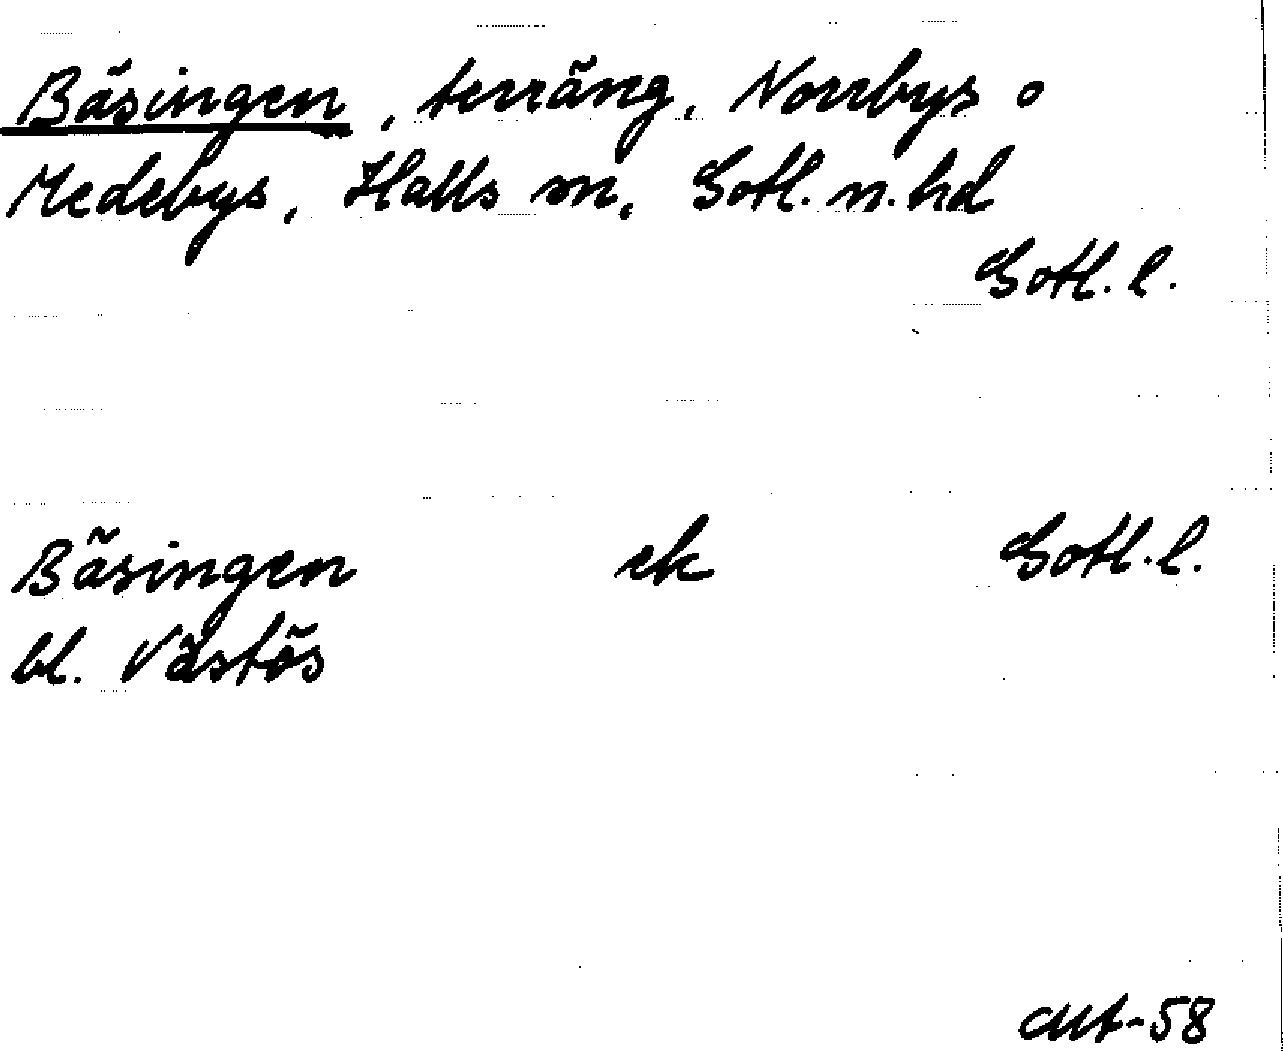 Bäsingen, terräng, Norrbys o
Medebys, Halls sn, Gotl. n. hd
Gotl. l.
Bäsingen ek Gotl. l.
bl. Västös
aut-58